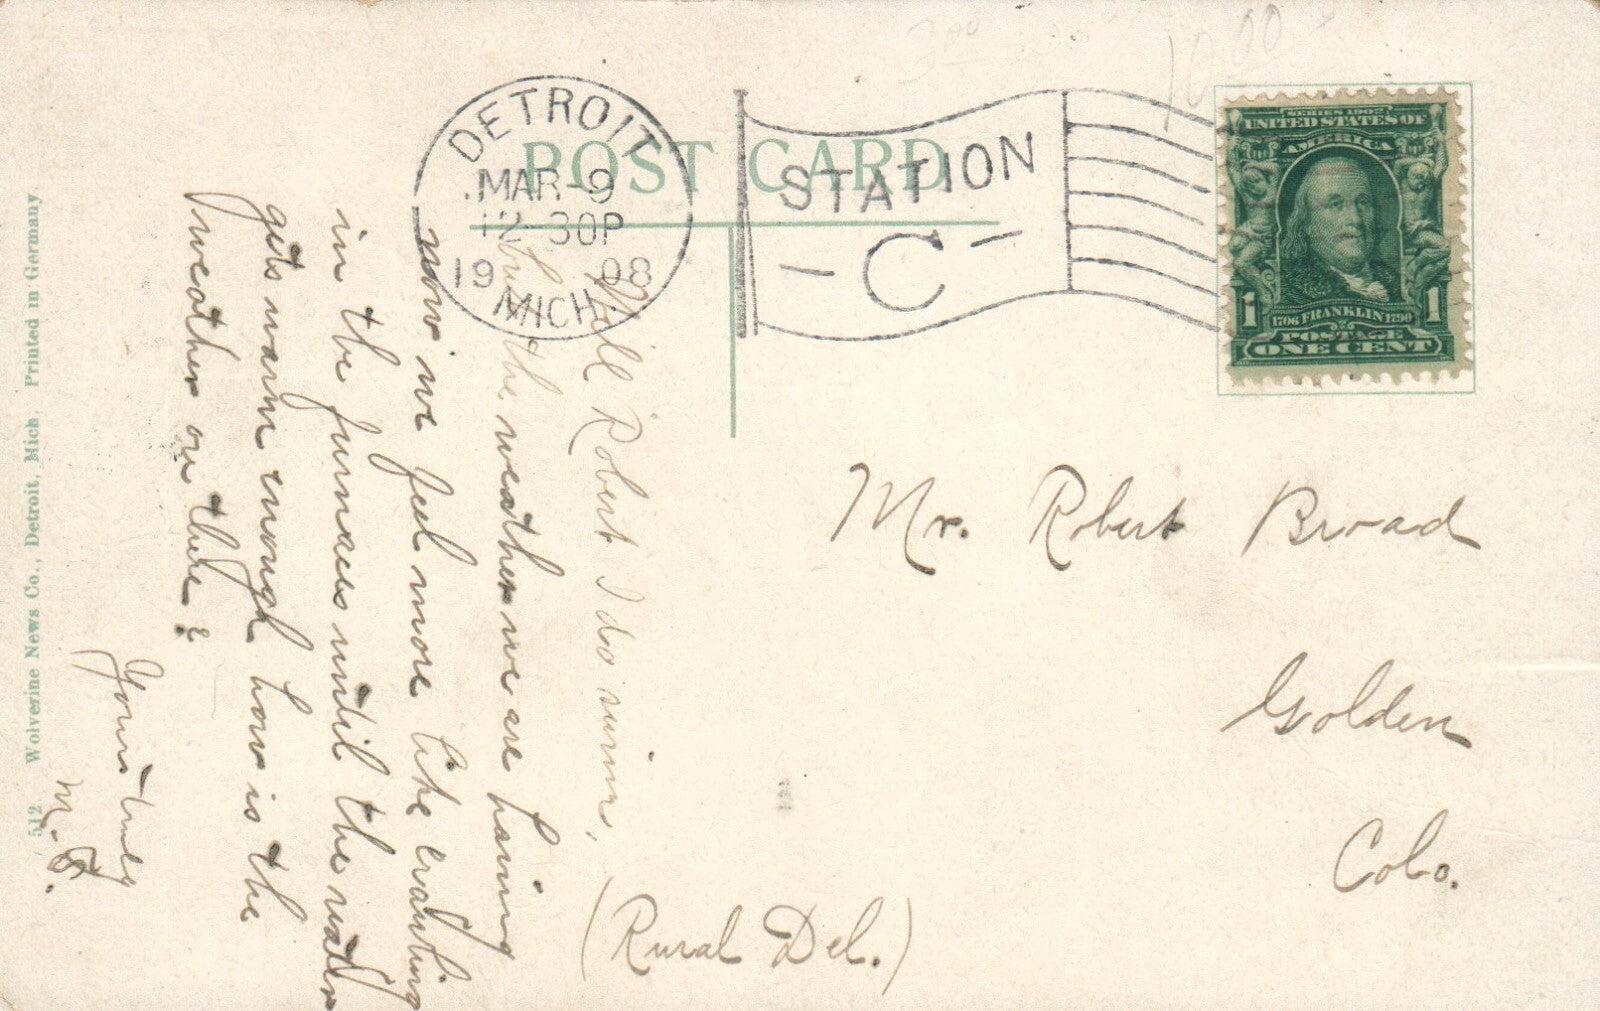 POST CARD
DETROIT
MAR-9
12-30P
1908
MICH.
STATION
- C -
SERIES 1902
UNITED STATES OF
AMERICA
1 1
1706 FRANKLIN 1790
POSTAGE
ONE CENT
3.00
10.00
Well Robert I do swim,
but the weather we are having
now we feel more like crawling
in the furnaces until the water
gets warm enough how is the
weather out there?
Yours truly
M. B.
Mr. Robert Broad
Golden
Colo.
(Rural Del.)
512 Wolverine News Co., Detroit, Mich. Printed in Germany